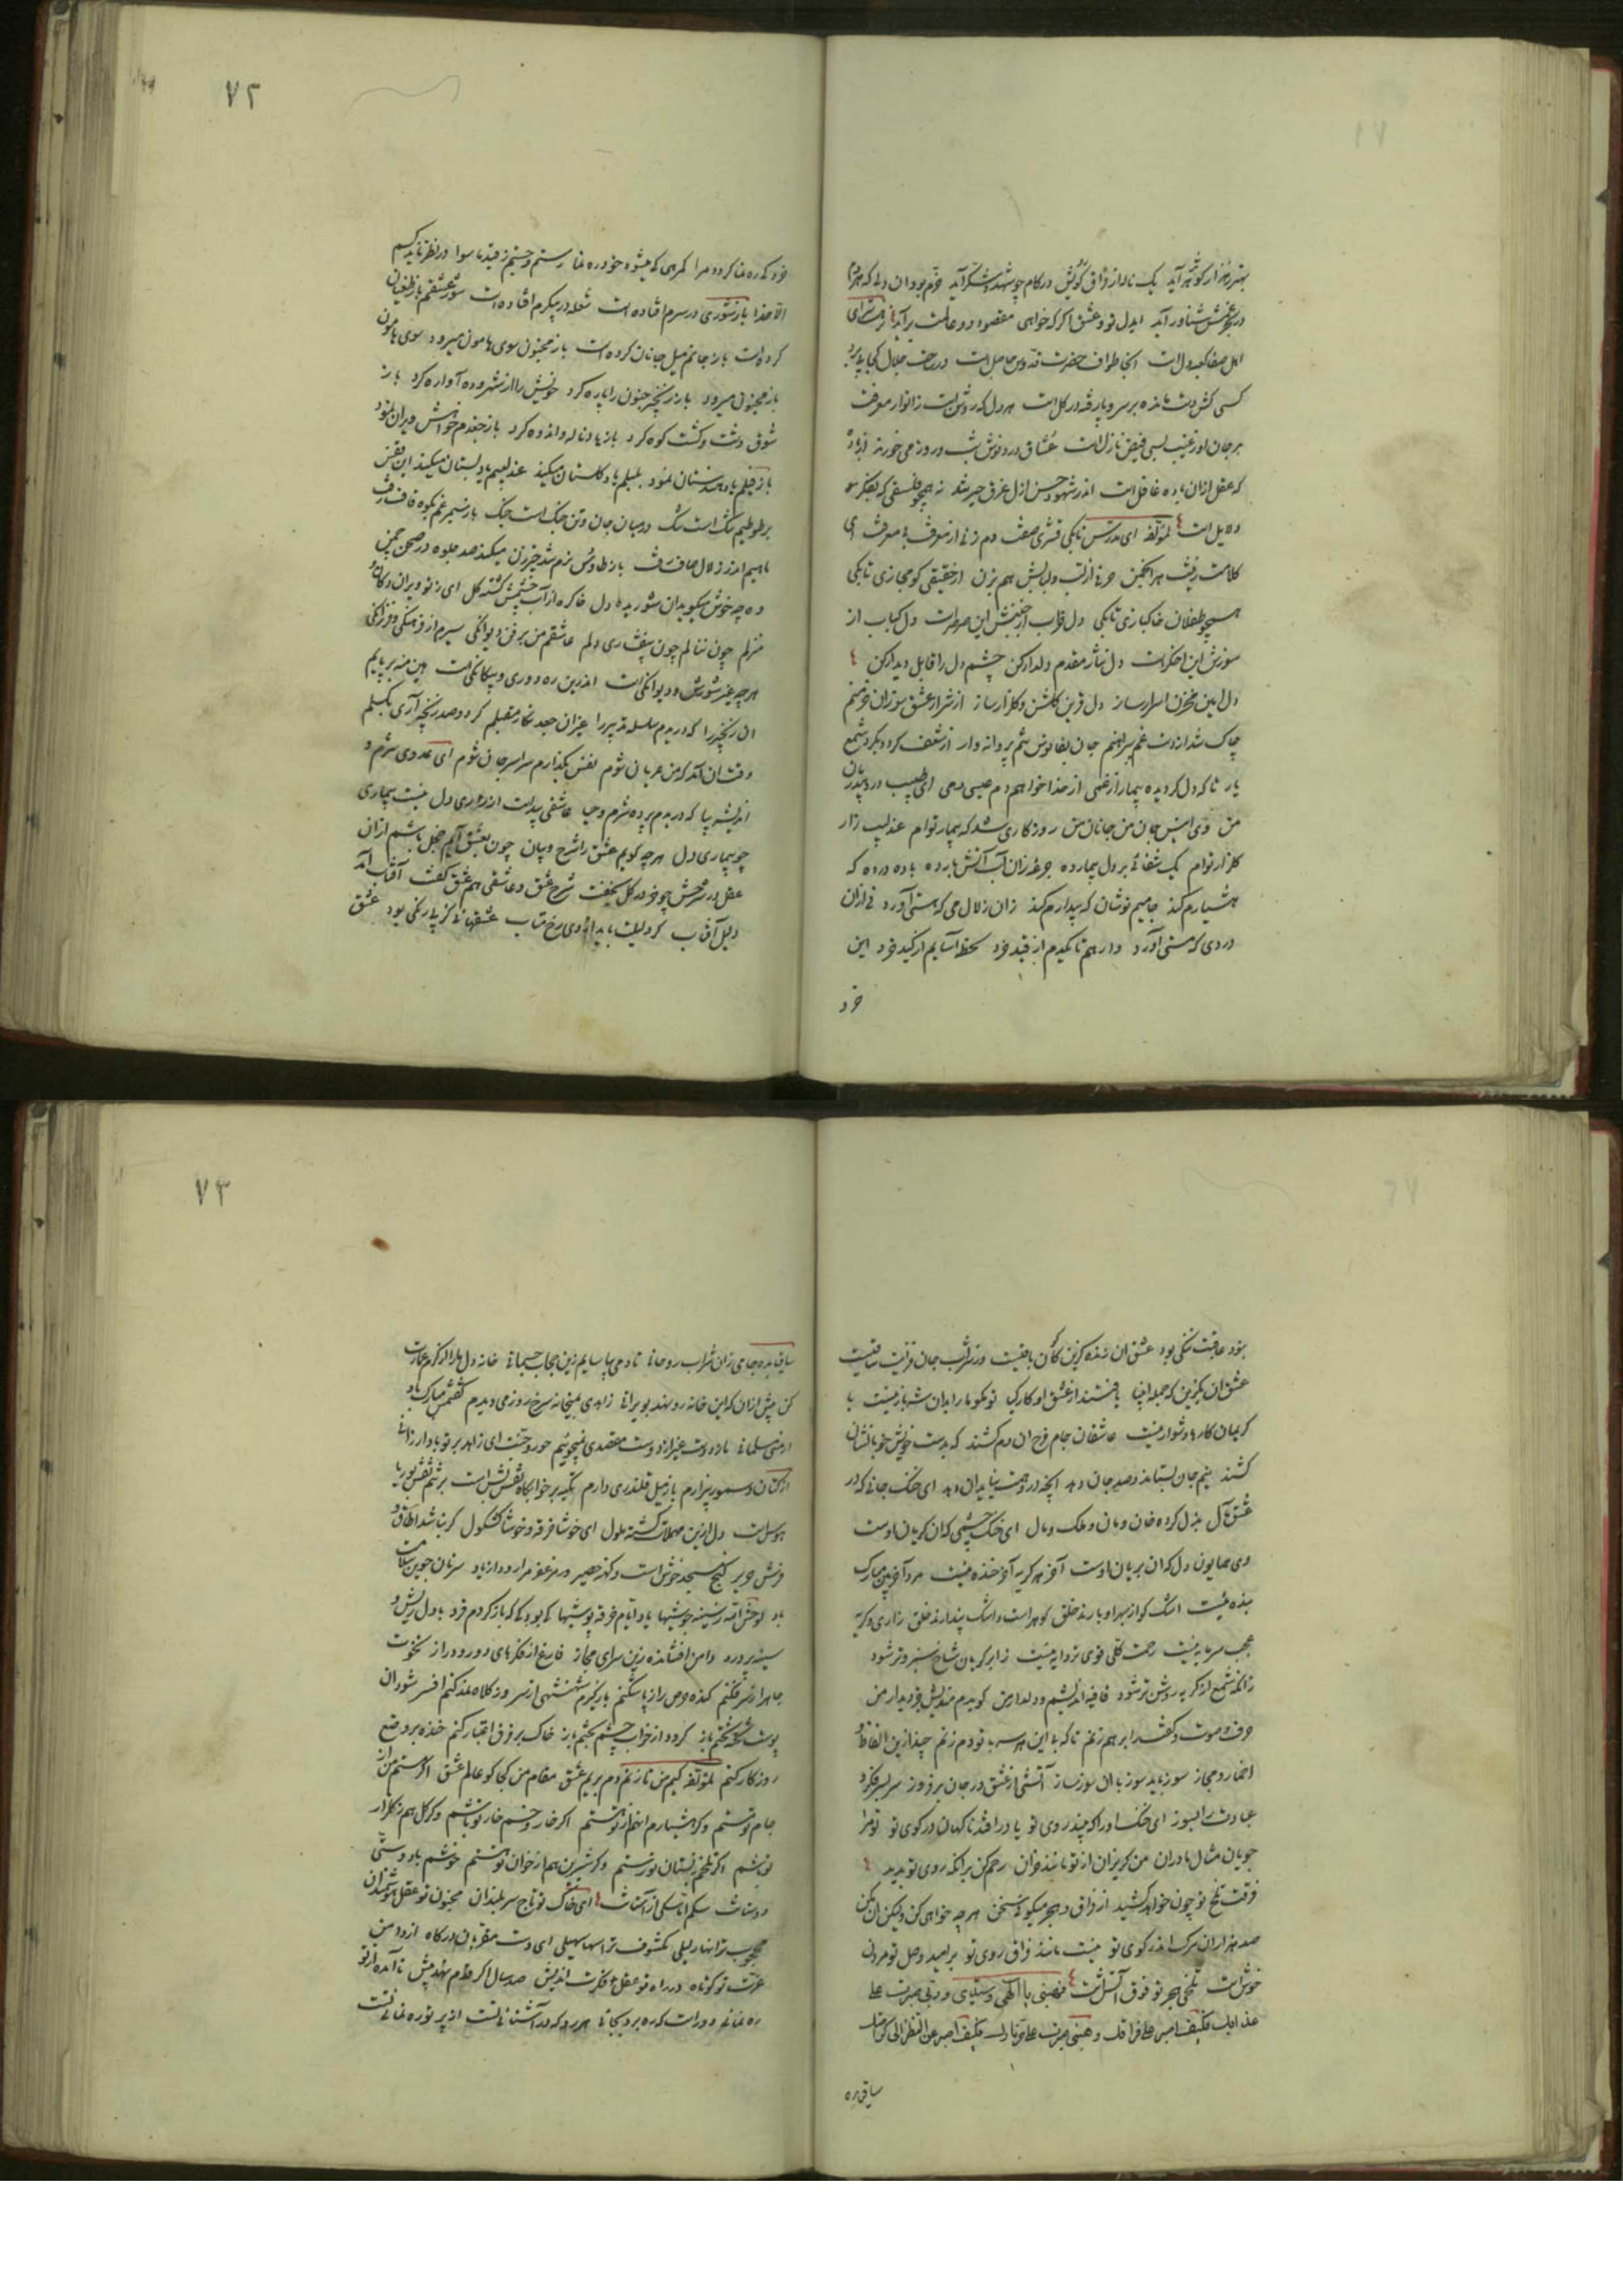 بهتر ز هزار کوثر آید یک ناله از ذاق کویش در کام چو شهد و شکر آید خرم بود آن دلی که هر دم
در بحر غمش شناور آید ایدل تو و عشق اگر که خواهی مقصود دو عالمت برآید
اهل صفا کعبه دل است آنجا طواف حضرت قدوس حاصل است در حضرت جلال کجا پی برد
کسی کش دست مانده بر سر و پا رفته در گل است هر دل که روشن است ز انوار معرفت
بر جان او ز غیب بسی فیض نازل است عشاق درد نوش شب و روز می خورند زان باده
که عقل ازان باده غافل است اندر شهود حسن ازل غرق حیرتند نه همچو فلسفی که بفکر
دلایل است لمؤلفه ای مدرس تا بکی قشری صفت دم زنی از معرفت بی معرفت ای
کلامت رفت هر انجمن حرفی از لب و لبابش هم بزن از حقیقی کو مجازی تا بکی
همچو طفلان خاکبازی تا بکی دل خراب از جنبش این صرصر است دل کباب از
سوزش این اخگر است دل نثار مقدم دلدار کن چشم دل را قابل دیدار کن
دل امین مخزن اسرار ساز دل قرین گلشن و گلزار ساز از شرار عشق سوزان خرمنم
چاک شد از دست غم پیراهنم جان بفانوس تنم پروانه وار از شعف گردد بگرد شمع
یار تا که دل گردیده بیمار از غمی از خدا خواهم دم عیسی دمی ای طبیب درد بیدرمان
من وی انیس جان من جانان من روزگاری شد که بیمار توام عندلیب زار
گلزار توام یک شفائی بر دل بیمار ده جرعه زان آب آتشبار ده باده در ده که
هشیارم کند جامیم نوشان که بیدارم کند زان زلال می که هستی آورد نی ازان
دردی که مستی آورد وارهم تا یکدم از قید خرد لحظه آسایم از کید خرد این
خرد
۷۲
خرد که ره نما گردد مرا گمرهی که میشود خود ره نما رستم و جستم ز قید ما سوا در نظر ناید کسم
الا خدا باز شوری در سرم افتاده است شعله در پیکرم افتاده است سوز عشقم باز طغیان
کرده است باز جانم میل جانان کرده است باز مجنون سوی هامون میرود سوی هامون
باز مجنون میرود باز زنجیر جنون را پاره کرد خویش را از شهر و ده آواره کرد باز
شوق دشت و گشت کوه کرد باز یاد ناله و اندوه کرد باز جغدم خواهش ویران نمود
باز فیلم یاد هندستان نمود بلبلم یاد گلستان میکند عندلیبم یاد بستان میکند این قفس
بر طوطیم تنگ است تنگ در میان جان و تن جنگ است جنگ باز سیمرغم بکوه قاف رفت
ماهیم اندر زلال صاف رفت باز طاوس نرم شد چرخ زن میکند صد جلوه در صحن چمن
وه چه خوش میگوید ان شوریده دل خاک ره از آب چشمش گشته گل ای ز تو ویران دکان و
منزلم چون ننالم چون بیفشاری دلم عاشقم من بر فن دیوانگی سیرم از فرهنگی و فرزانگی
هر چه غیر شورش و دیوانگیست اندرین ره دوری و بیگانگیست هین منه بر پایم
ان زنجیر را که دریدم سلسله تدبیر را غیر آن جعد نگار مقبلم گر دو صد زنجیر آری بگسلم
وقت ان آمد که من عریان شوم نقش بگذارم سراسر جان شوم ای عدوی شرم و
اندیشه بیا که دریدم پرده شرم و حیا عاشقی پیداست از زاری دل نیست بیماری
چو بیماری دل هر چه گویم عشق را شرح و بیان چون بعشق آیم خجل باشم ازان
عقل در شرحش چو خر در گل بخفت شرح عشق و عاشقی هم عشق گفت آفتاب آمد
دلیل آفتاب گر دلیلت باید از وی رخ متاب عشقهائی کز پی رنگی بود عشق
نبود عاقبت ننگی بود عشق ان زنده گزین کان باقیست وز شراب جان فزایت ساقیست
عشق ان بگزین که جمله انبیا یافتند از عشق او کار و کیا تو مگو ما را بدان شه بار نیست با
کریمان کارها دشوار نیست عاشقان جام فرح ان دم کشند که بدست خویش خوبانشان
کشند نیم جان بستاند و صد جان دهد آنچه در وهمت نیاید ان دهد ای خنک جانی که در
عشق مآل بذل کرده خان و مان و ملک و مال ای خنک چشمی که ان گریان اوست
وی همایون دل که ان بریان اوست آخر هر گریه آخر خنده ایست مرد آخر بین مبارک
بنده ایست اشک کو از بهر او بارند خلق گوهر است و اشک پندارند خلق زاری و گریه
عجب سرمایه ایست رحمت کلی قوی تر دایه ایست ز ابر گریان شاخ سبز و تر شود
زانکه شمع از گریه روشن تر شود قافیه اندیشم و دلدار من گویدم مندیش جز دیدار من
حرف و صوت و گفت را بر هم زنم تا که بی این هر سه با تو دم زنم چند ازین الفاظ و
اضمار و مجاز سوز باید سوز با ان سوز ساز آتشی از عشق در جان برفروز سر بسر فکر و
عبادت را بسوز ای خنک اورا که بیند روی تو یا در افتد ناگهان در کوی تو تو مرا
جویان مثال مادران من گریزان از تو مانند خران رحم کن بر آنکه روی تو بدید
فرقت تلخ تو چون خواهد کشید از فراق و هجر میگوئی سخن هر چه خواهی کن ولیکن ان مکن
صد هزاران مرگ اندر کوی تو نیست مانند فراق روی تو بر امید وصل تو مردن
خوش است تلخی هجر تو فوق آتش است فهبنی یا الهی و سیدی و ربی صبرت علی
عذابک فکیف اصبر علی فراقک و هبنی صبرت علی حر نارک فکیف اصبر عن النظر الی کرامتک
ساقی بده
۷۳
ساقیا بده جامی زان شراب روحانی تا دمی بیاسایم زین حجاب جسمانی خانه دل ما را از کرم عمارت
کن پیش ازان که این خانه رو نهد بویرانی زاهدی بمیخانه سرخ رو ز می دیدم گفتمش مبارک باد
ارمنی مسلمانی ما ز دوست غیر از دوست مقصدی نمیجوئیم حور و جنت ای زاهد بر تو باد ارزانی
از کتان و سمور بیزارم باز میل قلندری دارم تکیه بر خوابگاه نقش بس است بر تنم نقش بوریا
هوس است دل ازین مهملات گشته ملول ای خوشا خرقه و خوشا کشکول گر نباشد اطاق و
فرش حریر کنج مسجد خوش است و کهنه حصیر ور مزعفر مرا رود از یاد سر نان جوین سلامت
باد لوحش الله ز سینه جوشیها یاد ایام خرقه پوشیها کی بود کی که باز گردم فرد با دل ریش و
سینه پر درد دامن افشانده زین سرای مجاز فارغ از فکرهای دور و دراز نخوت
جاه را ز سر فکنم کنده حرص را ز پا شکنم بار گیرم شهنشهی از سر وز کلاه نمد کنم افسر شود ان
پوست تخت تختم باز گردد از خواب چشم بختم باز خاک بر فرق اعتبار کنم خنده بر وضع
روزگار کنم لمؤلفه کیم من تا زنم دم بریم عشق مقام من کجا کو عالم عشق اگر مستم من از
جام تو مستم وگر هشیارم انهم از تو هستم اگر خار و خسم خار تو باشم وگر گل هم ز گلزار
تو باشم اگر تلخم ز بستان تو رستم وگر شیرین هم از خوان تو هستم خوشم با دوستی
دوستانت سگم اما سگی از آستانت ای خاک تو تاج سر بلندان مجنون تو عقل هوشمندان
محجوب ترا نهار لیلی مکشوف ترا سها سهیلی ای دست مقربان درگاه از دامن
عزت تو کوتاه در راه تو عقل فکرت اندیش صد سال اگر قدم نهد پیش تا آمده از تو
ره نمائی دور است که ره برد بجائی هر رو که در آشنائی تست از پرتو ره نمائی تست